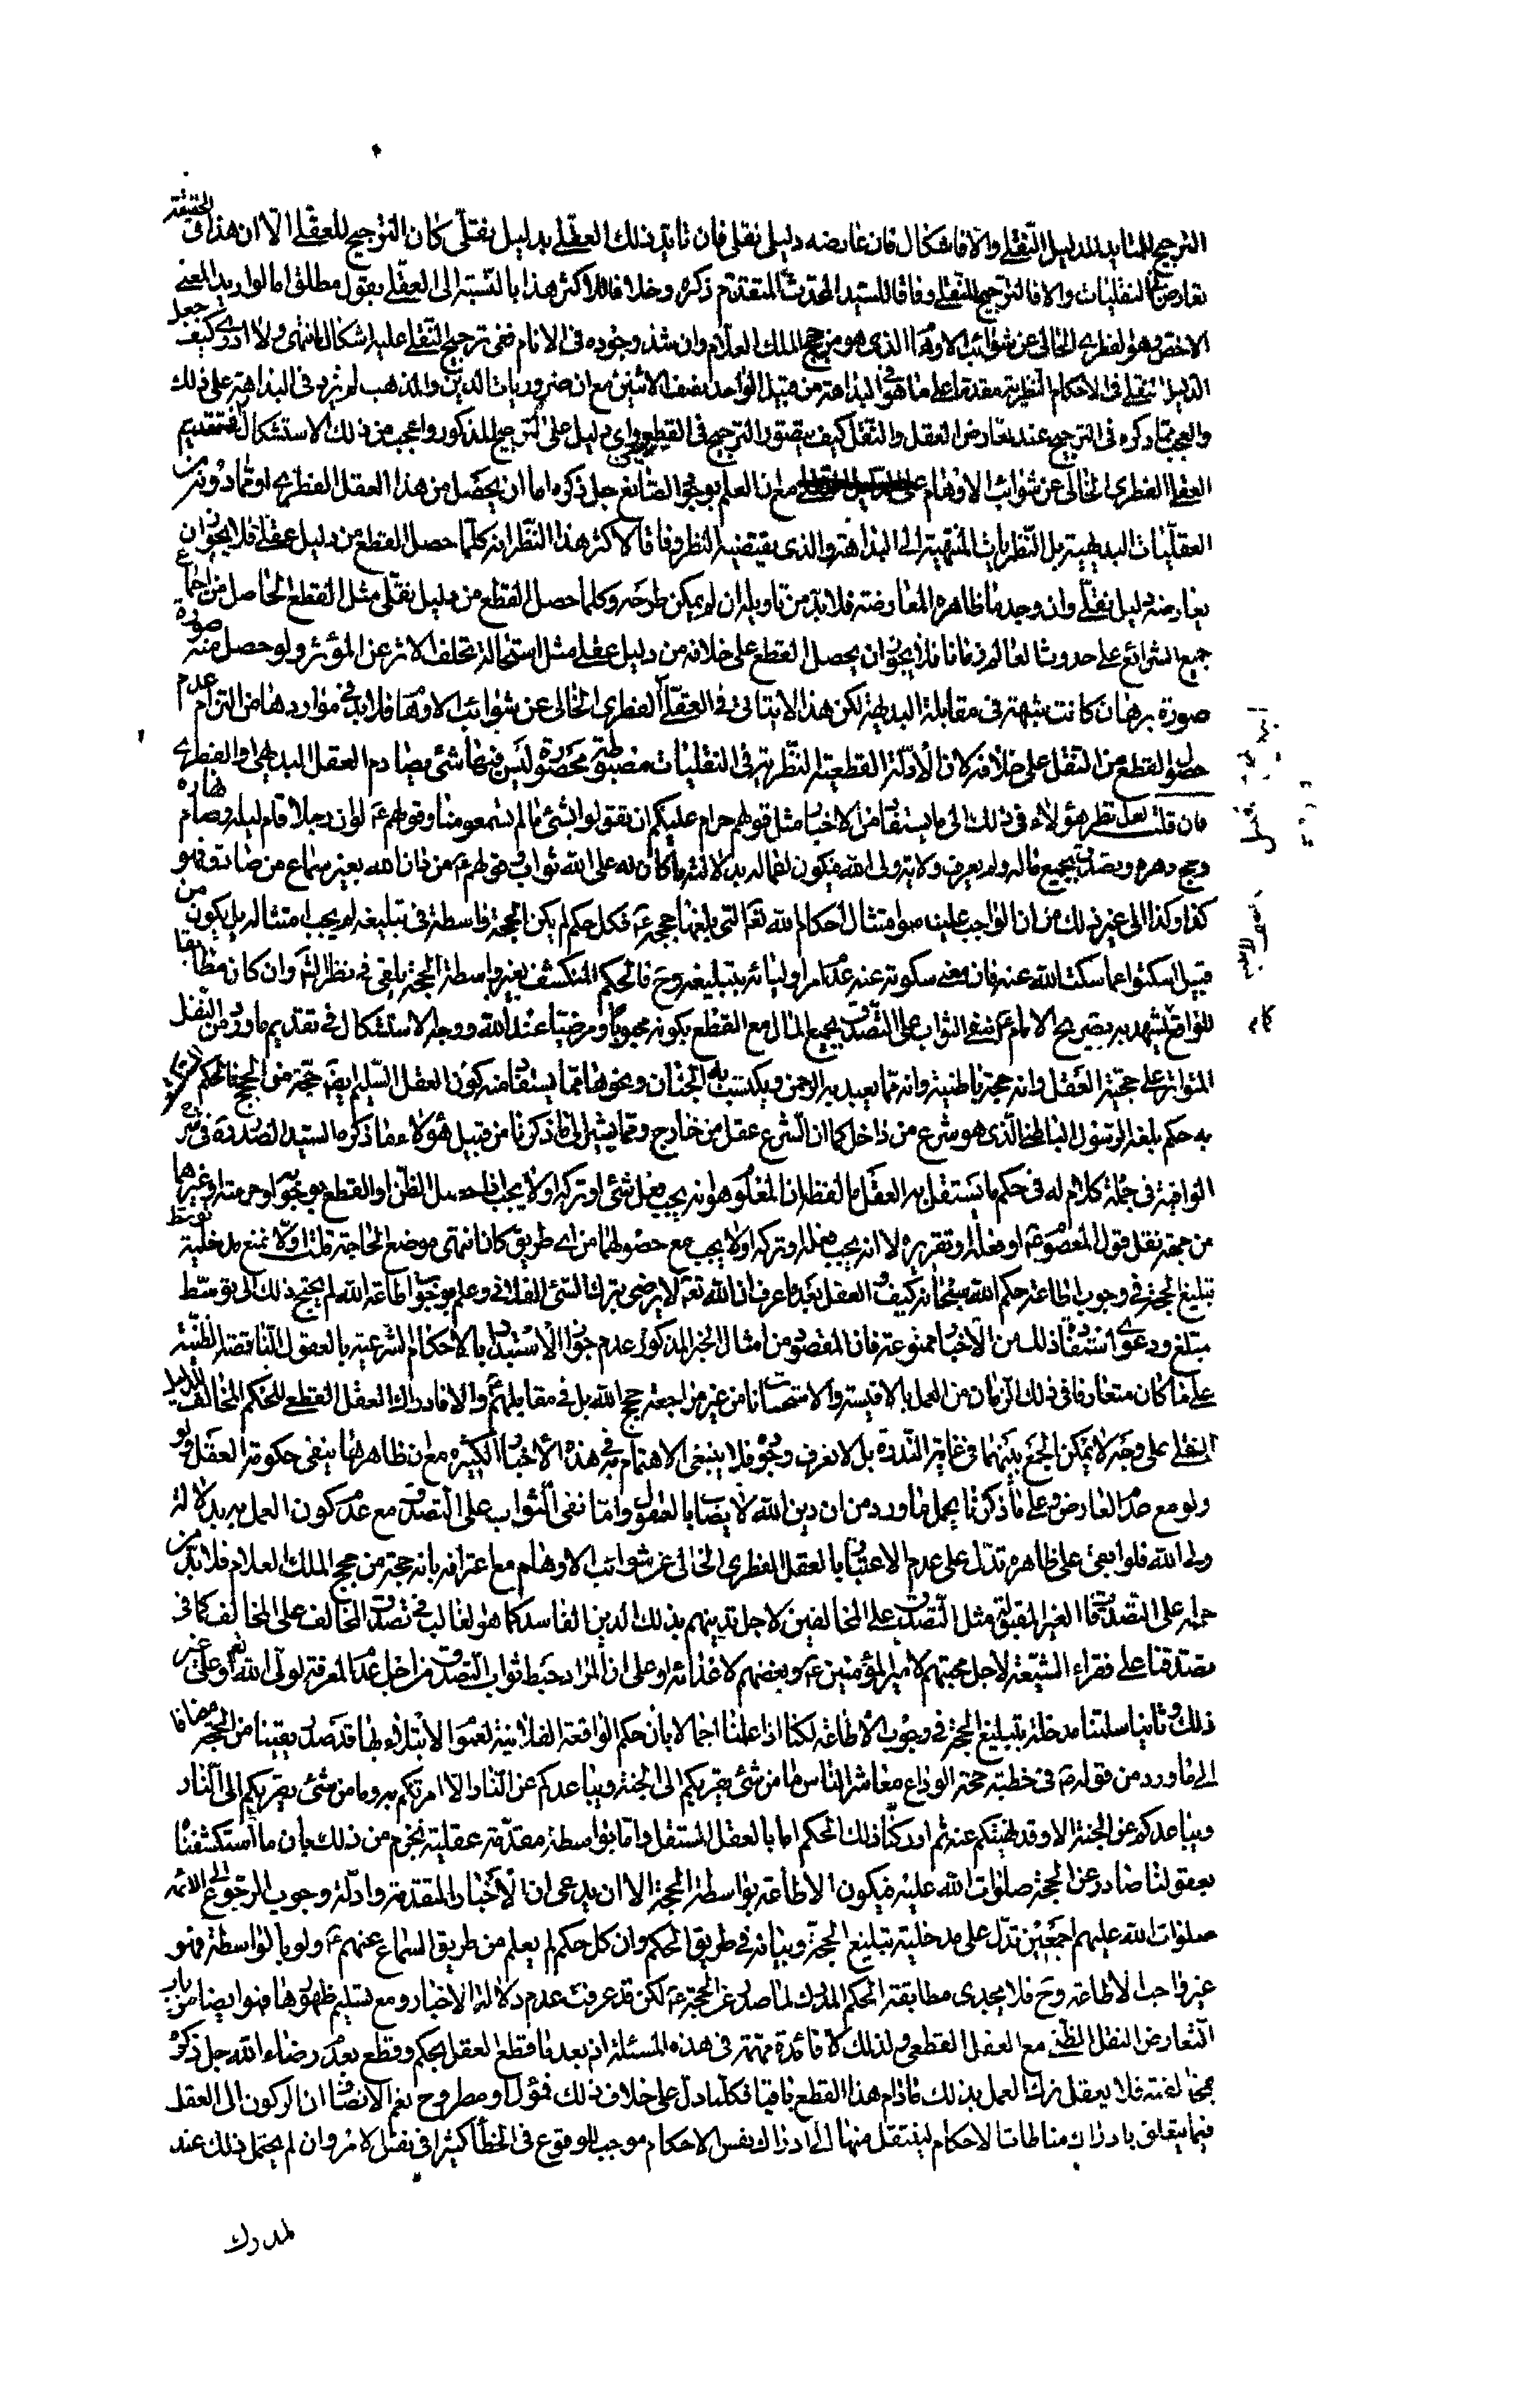 الترجيح للمتايد بالدليل النقلي والا فاشكال فان عارضه دليل نقلي فان تايد ذلك العقلي بدليل نقلي كان الترجيح للعقلي الا ان هذا في الحقيقة
تعارض في النقليات والا فالترجيح للنقلي وفاقا للسيد المحدث المتقدم ذكره وخلافا للاكثر هذا بالنسبة الى العقلي بقول مطلق اما لو اريد المعنى
الاخص وهو الفطري الخالي عن شوائب الاوهام الذي هو من حجج الملك العلام وان شذ وجوده في الانام ففي ترجيح النقلي عليه اشكال انتهى ولا ادري كيف جعل
الدليل النقلي في الاحكام النظرية مقدما على ما هو في البداهة من قبيل الواحد نصف الاثنين مع ان ضروريات الدين والمذهب لم يزد في البداهة على ذلك
والعجب مما ذكره في الترجيح عند تعارض العقل والنقل كيف يتصور الترجيح في القطعيين واي دليل على الترجيح المذكور واعجب من ذلك الاستشكال في تقديم
العقلي الفطري الخالي عن شوائب الاوهام مع ان العلم بوجود الصانع جل ذكره اما ان يحصل من هذا العقل الفطري او مما دونه من
العقليات البديهية بل النظريات المنتهية الى البداهة والذي يقتضيه النظر وفاقا لاكثر هذا النظر انه كلما حصل القطع من دليل عقلي فلا يجوز ان
يعارضه دليل نقلي وان وجد ما ظاهره المعارضة فلا بد من تاويله ان لم يمكن طرحه وكلما حصل القطع من دليل نقلي مثل القطع الحاصل من اجماع
جميع الشرائع على حدوث العالم زمانا فلا يجوز ان يحصل القطع على خلافه من دليل عقلي مثل استحالة تخلف الاثر عن المؤثر ولو حصل منه صورة
صورة برهان كانت شبهة في مقابلة البديهة لكن هذا لا يتاتى في العقلي الفطري الخالي عن شوائب الاوهام فلا بد في مواردها من التزام عدم
حصول القطع من النقل على خلافه لان الادلة القطعية النظرية في النقليات مضبوطة محصورة ليس فيها شئ يصادم العقل البديهي او الفطري
فان قلت لعل نظر هؤلاء في ذلك الى ما يستفاد من الاخبار مثل قولهم حرام عليكم ان تقولوا بشئ ما لم تسمعوه منا وقولهم ع لو ان رجلا قام ليله وصام نهاره
وحج دهره وتصدق بجميع ماله ولم يعرف ولاية ولي الله فيكون اعماله بدلالته ما كان له على الله ثواب وقولهم ع من دان الله بغير سماع من صادق فهو
كذا وكذا الى غير ذلك من ان الواجب علينا هو امتثال احكام الله تعم التي بلغها حججه ع فكل حكم لم يكن الحجة واسطة في تبليغه لم يجب امتثاله بل يكون من
قبيل اسكتوا عما سكت الله عنه فان معنى سكوته عنه عدم امر اوليائه بتبليغه وح فالحكم المنكشف بغير واسطة الحجة ملغى في نظر الشم وان كان مطابقا
للواقع يشهد به تصريح الامام ع بنفي الثواب على التصدق بجميع المال مع القطع بكونه محبوبا ومرضيا عند الله ووجه الاستشكال في تقديم ما ورد من النقل
المتواتر على حجية العقل وانه حجة باطنية وانه مما يعبد به الرحمن ويكتسب به الجنان ونحوها مما يستفاد منه كون العقل السليم ايضا حجة من الحجج فالحكم
به حكم بلغه الرسول الباطني الذي هو شرع من داخل كما ان الشرع عقل من خارج ومما يشير الى ما ذكرنا من قبيل هؤلاء ما ذكره السيد الصدر ره في شرح
الوافية في جملة كلام له في حكم ما يستقل به العقل ما لفظه ان المعلوم هو انه يجب فعل شئ او تركه او لا يجب اذا حصل الظن او القطع بوجوبه او حرمته او غيرهما
من جهة نقل قول المعصوم ع او فعله او تقريره لا انه يجب فعله او تركه او لا يجب مع حصولهما من اي طريق كان انتهى موضع الحاجة قلت اولا نمنع مدخلية توسط
تبليغ الحجة في وجوب اطاعة حكم الله سبحانه كيف والعقل بعد ما عرف ان الله تعم لا يرضى بترك الشئ الفلاني وعلم بوجوب اطاعة الله لم يحتج ذلك الى توسط
مبلغ ودعوى استفادة ذلك من الاخبار ممنوعة فان المقصود من امثال الخبر المذكور عدم جواز الاستبداد بالاحكام الشرعية بالعقول الناقصة الظنية
على ما كان متعارفا في ذلك الزمان من العمل بالاقيسة والاستحسانات من غير مراجعة حجج الله بل في مقابلهم ع والا فادراك العقل القطعي للحكم المخالف للدليل
النقلي على وجه لا يمكن الجمع بينهما في غاية الندرة بل لا نعرف وجوده فلا ينبغي الاهتمام به في هذه الاخبار الكثيرة مع ان ظاهرها ينفي حكومة العقل ولو
ولو مع عدم المعارض وعلى ما ذكرنا يحمل ما ورد من ان دين الله لا يصاب بالعقول واما نفي الثواب على التصدق مع عدم كون العمل به بدلالة
ولي الله فلو ابقى على ظاهره تدل على عدم الاعتبار بالعقل الفطري الخالي عن شوائب الاوهام مع اعترافه بانه حجة من حجج الملك العلام فلا بد من
حمله على التصدقات الغير المقبولة مثل التصدق على المخالفين لاجل تدينهم بذلك الدين الفاسد كما هو الغالب في تصدق المخالف على المخالف كما في
تصدقنا على فقراء الشيعة لاجل محبتهم لامير المؤمنين ع وبغضهم لاعدائه او على ان المراد حبط ثواب التصدق من اجل عدم المعرفة لولي الله تعم او على غير
ذلك وثانيا سلمنا مدخلية تبليغ الحجة في وجوب الاطاعة لكنا اذا علمنا اجمالا بان حكم الواقعة الفلانية لعموم الابتلاء بها قد صدر يقينا من الحجة مضافا
الى ما ورد من قوله ص في خطبة حجة الوداع معاشر الناس ما من شئ يقربكم الى الجنة ويباعدكم عن النار الا امرتكم به وما من شئ يقربكم الى النار
ويباعدكم عن الجنة الا وقد نهيتكم عنه ثم ادركنا ذلك الحكم اما بالعقل المستقل واما بواسطة مقدمة عقلية نجزم من ذلك بان ما استكشفناه
بعقولنا صادر عن الحجة صلوات الله عليه فيكون الاطاعة بواسطة الحجة الا ان يدعى ان الاخبار المتقدمة وادلة وجوب الرجوع الى الائمة
صلوات الله عليهم اجمعين تدل على مدخلية تبليغ الحجة وبيانه في طريق الحكم وان كل حكم لم يعلم من طريق السماع عنهم ع ولو بالواسطة فهو
غير واجب الاطاعة وح فلا يجدي مطابقة الحكم المدرك لما صدر عن الحجة ع لكن قد عرفت عدم دلالة الاخبار ومع تسليم ظهورها فهو ايضا من باب
التعارض النقل الظني مع العقل القطعي ولذلك لا فائدة مهمة في هذه المسئلة اذ بعد ما قطع العقل بحكم وقطع بعدم رضاء الله جل ذكره
بمخالفته فلا يعقل ترك العمل بذلك ما دام هذا القطع باقيا فكلما دل على خلاف ذلك فمؤل او مطروح نعم الانصاف ان الركون الى العقل
فيما يتعلق بادراك مناطات الاحكام لينتقل منها الى ادراك نفس الاحكام موجب للوقوع في الخطأ كثيرا في نفس الامر وان لم يحتمل ذلك عند
لمدرك